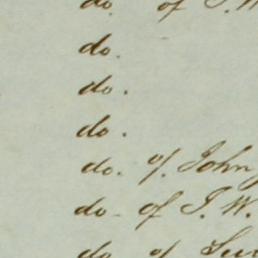 do of
do.
do.
do.
do. of John
do - of J. W.
do of